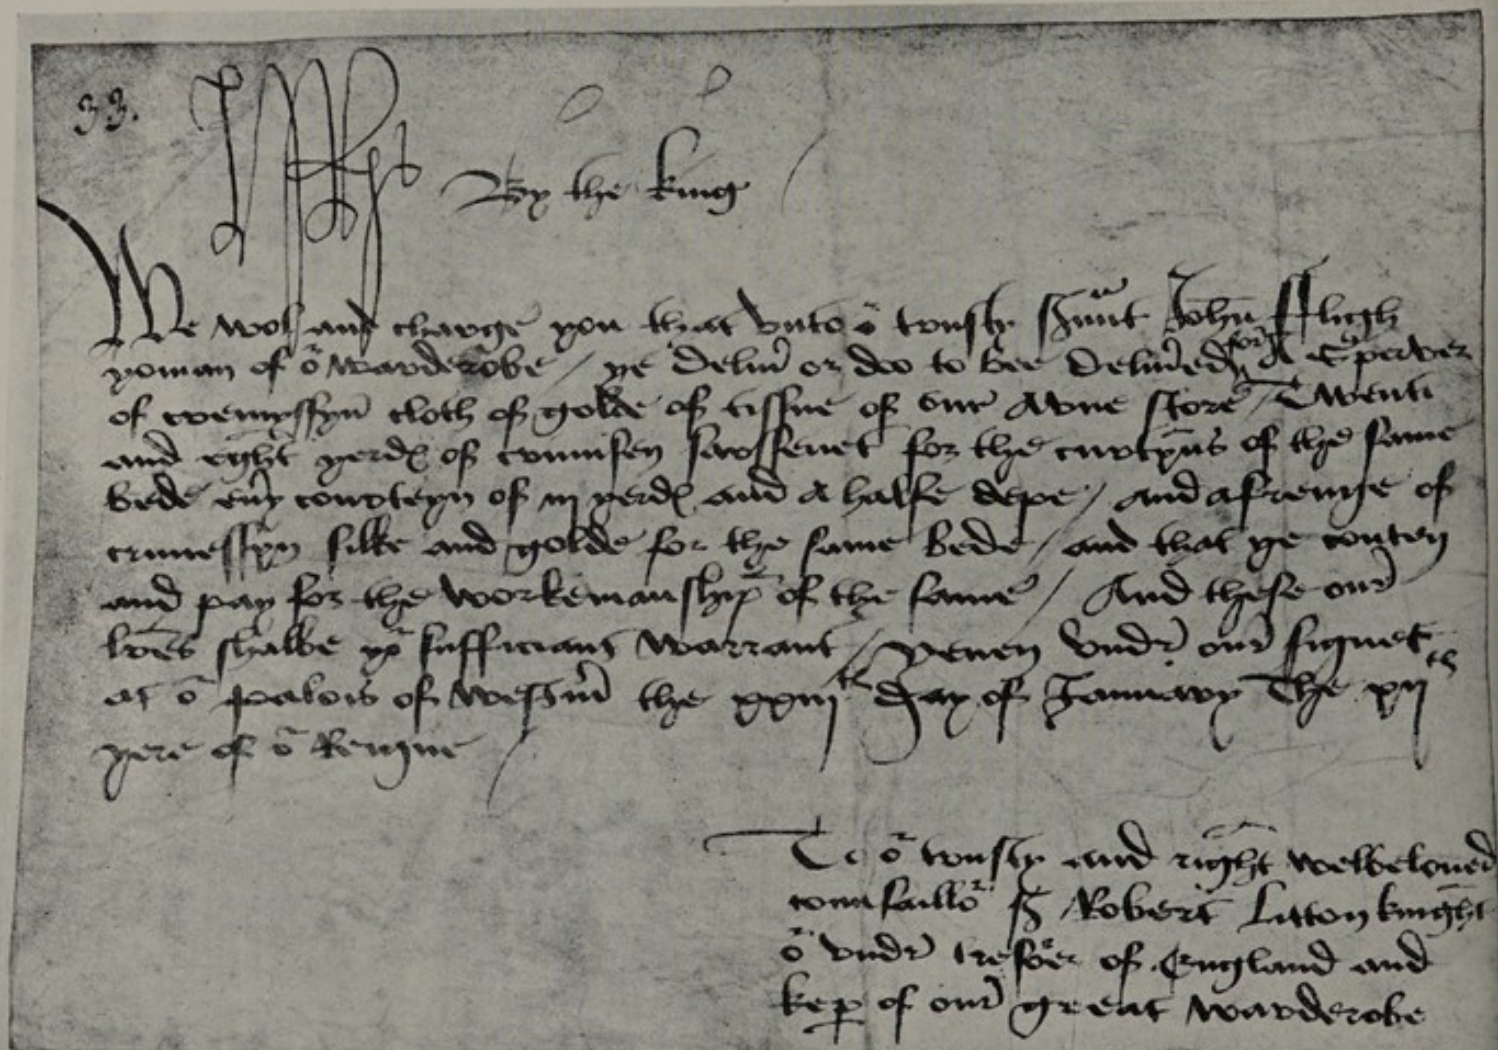 33.
By the king
We wol and charge you that vnto oʳ trusty sʳuūt John Fligh
yoman of oʳ warderobe / ye deliuʳ or doo to bee deliuʳed for A Sperver
of cremyssyn cloth of golde of tissue of our Awne store / Twenti
and eght yerdꝭ of crimisen sarssenet for the curtyns of the same
bede euʳy courteyn of iij yerdꝭ and a halfe depe / and a frenge of
crimessyn silke and golde for the same bede / and that ye conten
and pay for the workemanship of the same / And these ourʳ
lrēs shalbe yoʳ sufficiant warrant / yeuen vndrʳ ourʳ signet
at oʳ palois of Westmʳ the xxiijᵗⁱ day of January The xijᵗʰ
yere of oʳ Reigne
To oʳ trusty and right welbeloued
counsailloʳ sʳ Robert Litton knight
oʳ vndrʳ tresoʳer of England and
kepꝑ of ourʳ great warderobe